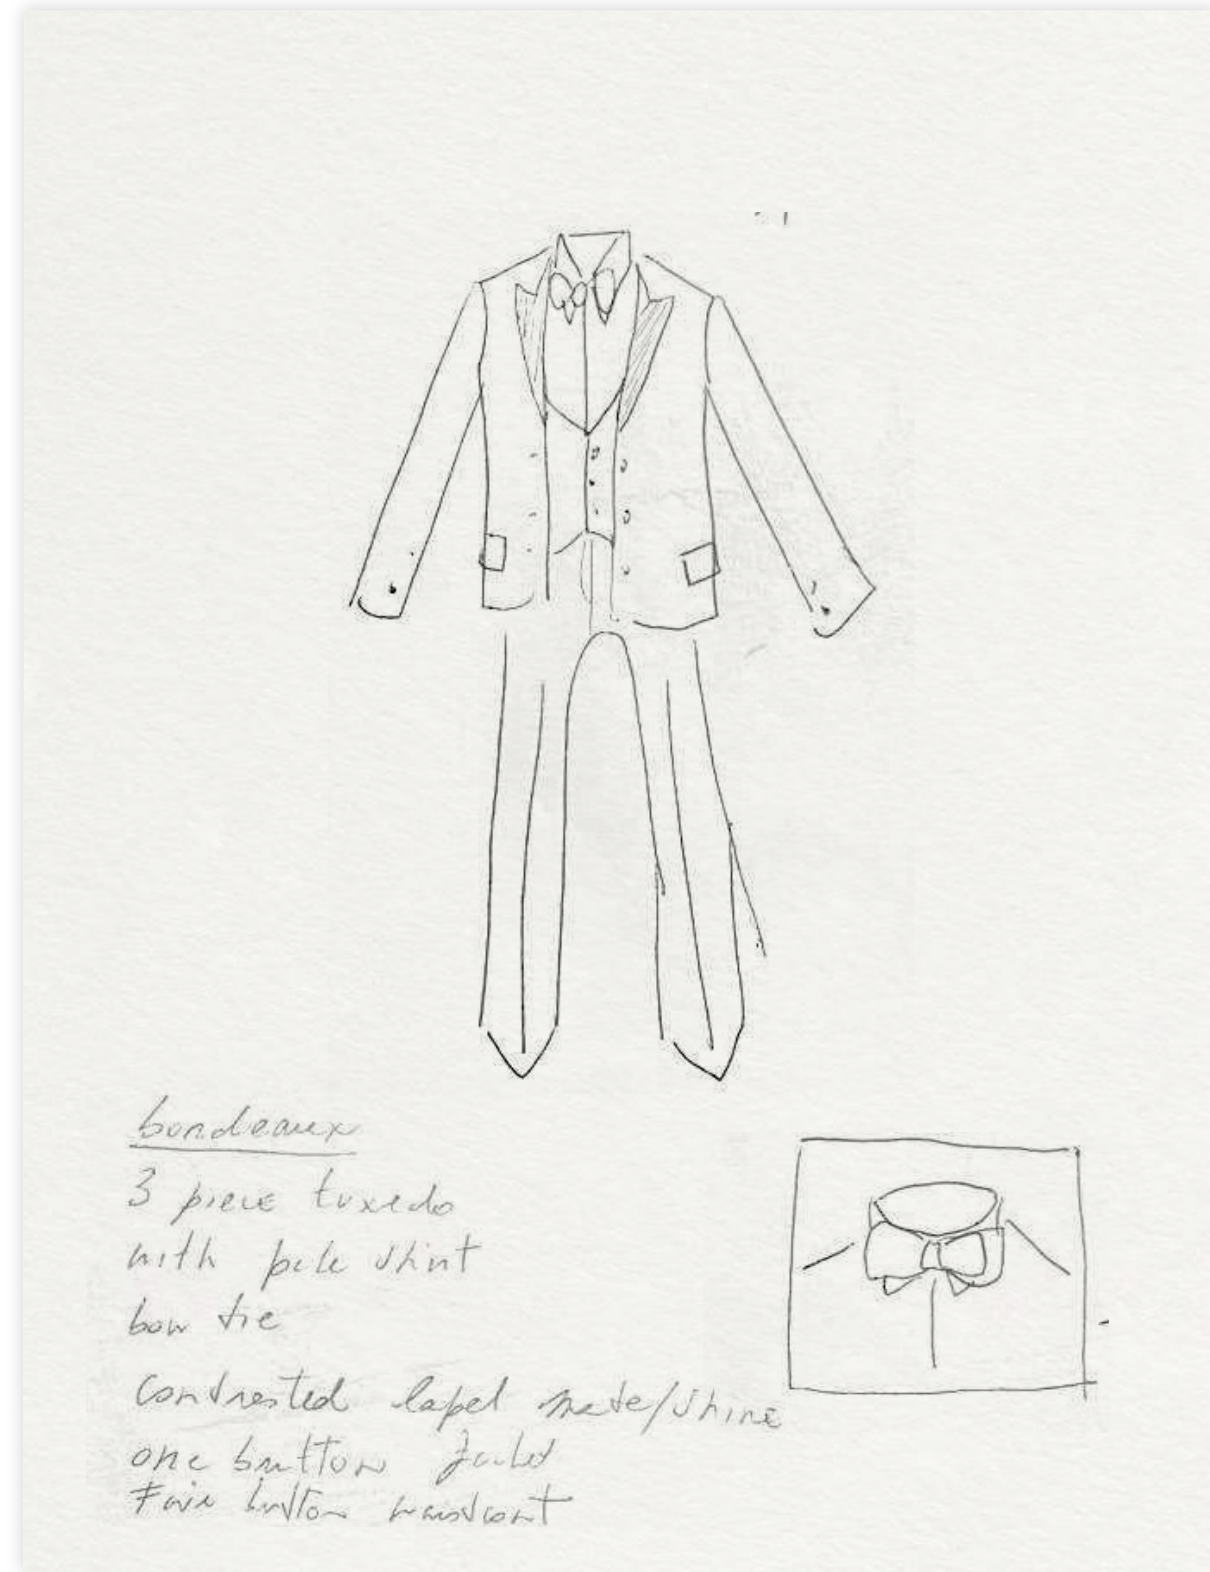 bordeaux
3 piece tuxedo
with pale shirt
bow tie
contrasted lapel mate/shine
one button jacket
button waistcoat